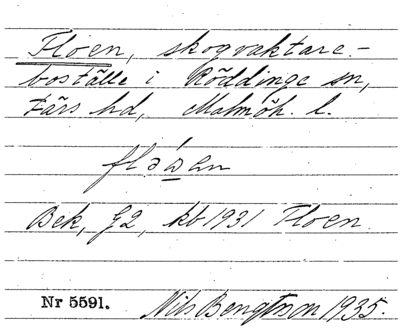 Floen, skogvaktare-
boställe i Röddinge sn,
Färs hd, Malmöh. l.
fləʹɷ̲ən
Bek, G2, kb 1931 Floen.
Nr 5591. Nils Bengtsson 1935.